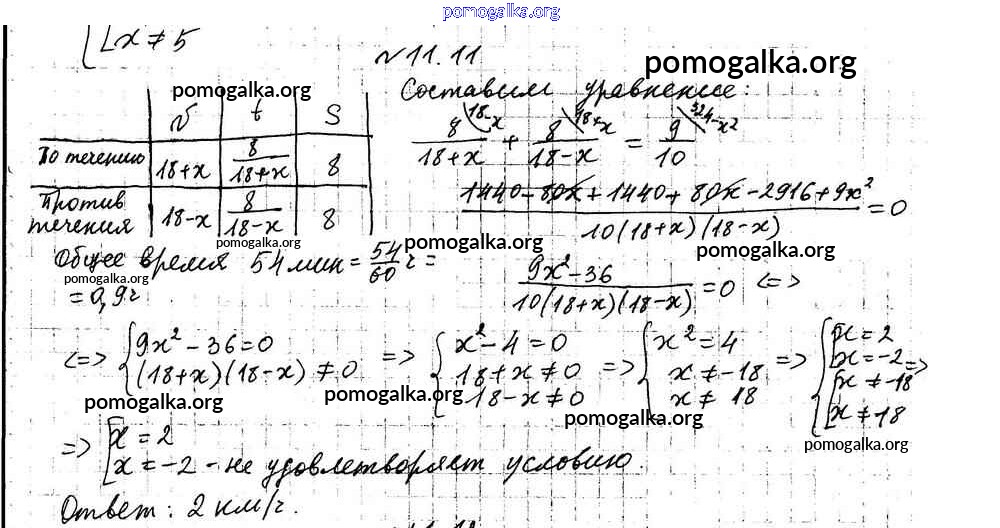 pomogalka.org
x ≠ 5
№ 11.11
pomogalka.org
pomogalka.org
Составим уравнение:
v t S
По течению 18+x 8/(18+x) 8
Против течения 18-x 8/(18-x) 8
8/(18+x) (18-x) + 8/(18-x) (18+x) = 9/10 (324-x²)
(1440-80x+1440+80x-2916+9x²)/(10(18+x)(18-x)) = 0
pomogalka.org
pomogalka.org
pomogalka.org
Общее время 54 мин = 54/60 ч =
pomogalka.org
= 0,9 ч
(9x²-36)/(10(18+x)(18-x)) = 0 <=>
<=> { 9x²-36=0 => { x²-4=0 => { x²=4 => { [ x=2
(18+x)(18-x) ≠ 0 18+x ≠ 0 x ≠ -18 x=-2 =>
18-x ≠ 0 x ≠ 18 [ x ≠ -18
x ≠ 18
pomogalka.org
pomogalka.org
pomogalka.org
pomogalka.org
=> [ x = 2
x = -2 - не удовлетворяет условию.
Ответ: 2 км/ч.